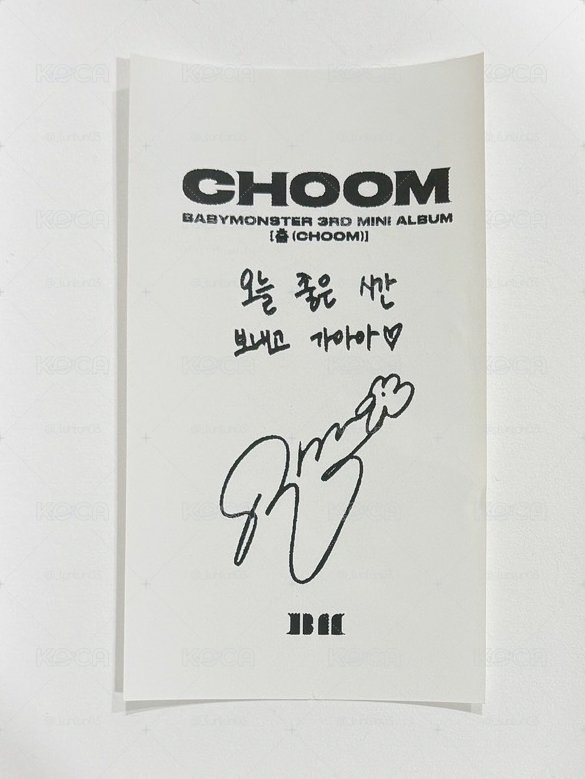 CHOOM
BABYMONSTER 3RD MINI ALBUM
[춤 (CHOOM)]
오늘 좋은 시간
보내고 가아아♡